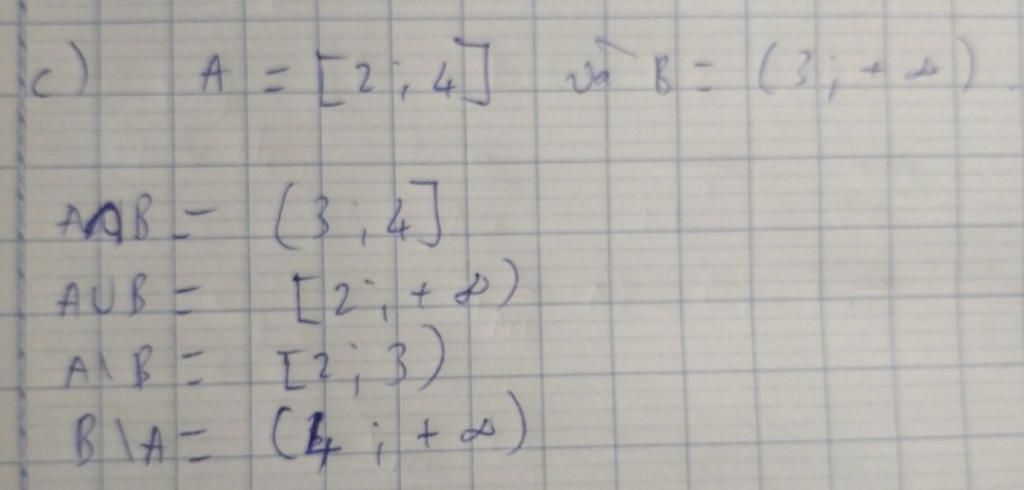 c) A = [2 ; 4] và B = (3 ; + ∞)
A∩B = (3 ; 4]
A∪B = [2 ; + ∞)
A\B = [2 ; 3)
B\A = (4 ; + ∞)